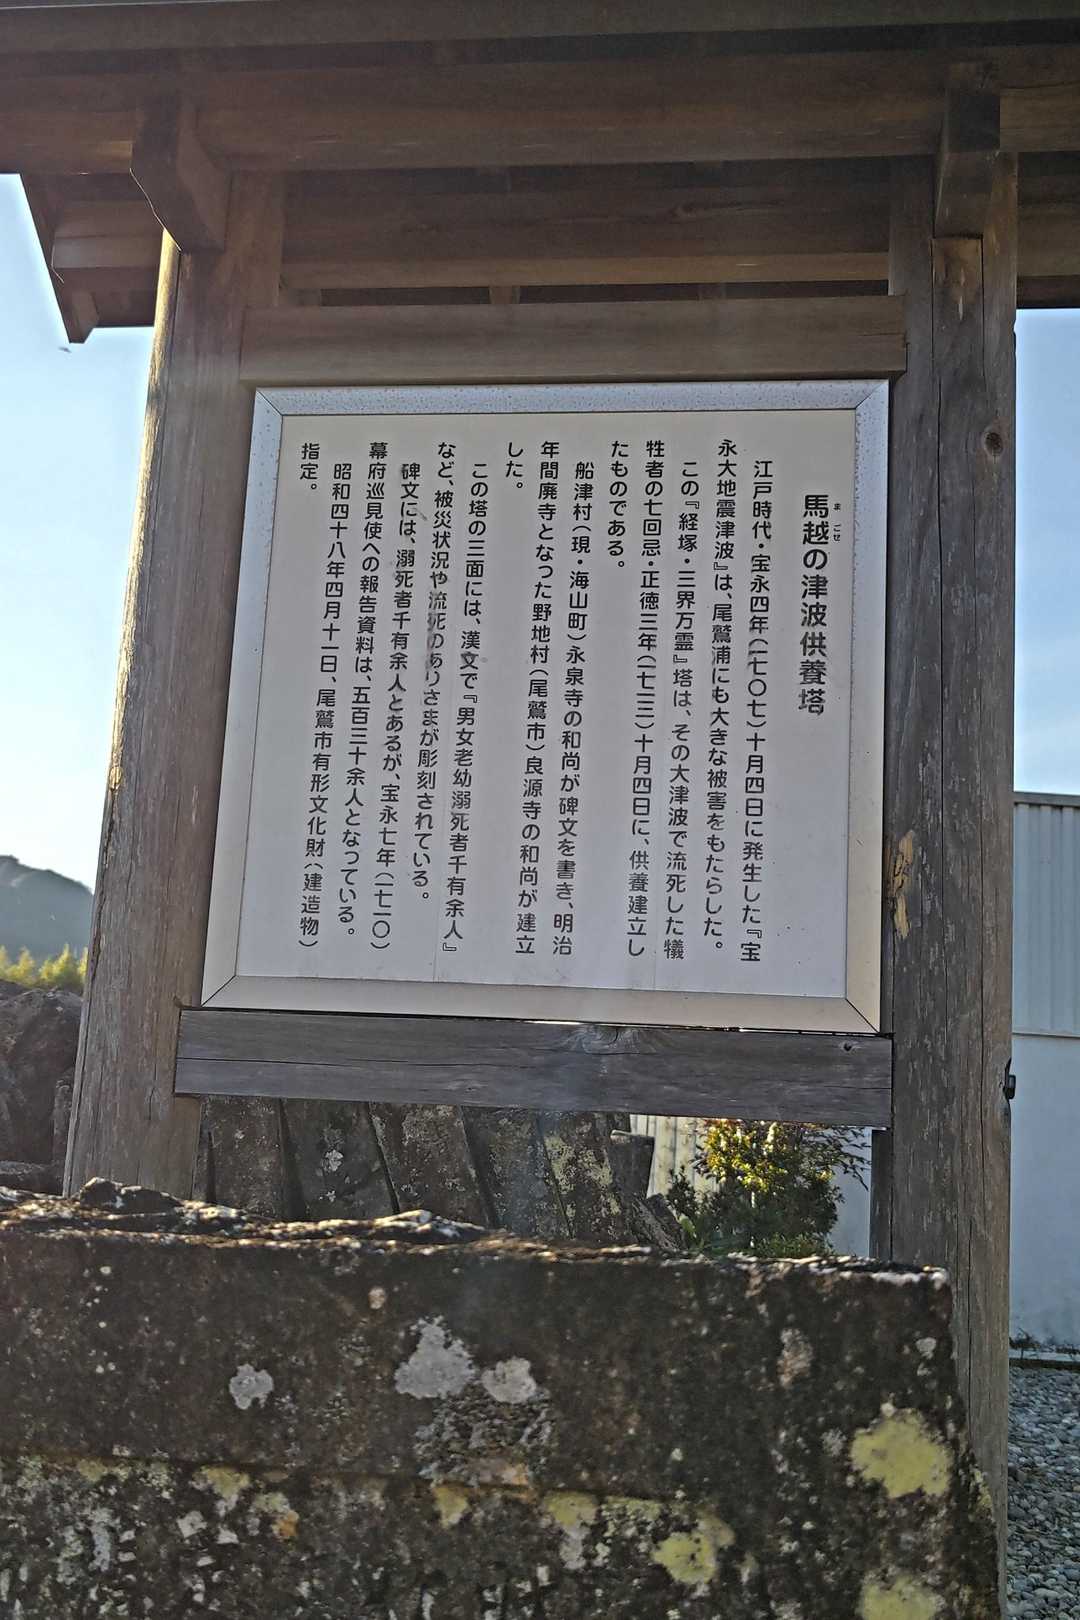 馬越の津波供養塔
まごせ
江戸時代・宝永四年(一七〇七)十月四日に発生した『宝
永大地震津波』は、尾鷲浦にも大きな被害をもたらした。
この『経塚・三界万霊』塔は、その大津波で流死した犠
牲者の七回忌・正徳三年(一七一三)十月四日に、供養建立し
たものである。
船津村(現・海山町)永泉寺の和尚が碑文を書き、明治
年間廃寺となった野地村(尾鷲市)良源寺の和尚が建立
した。
この塔の三面には、漢文で『男女老幼溺死者千有余人』
など、被災状況や流死のありさまが彫刻されている。
碑文には、溺死者千有余人とあるが、宝永七年(一七一〇)
幕府巡見使への報告資料は、五百三十余人となっている。
昭和四十八年四月十一日、尾鷲市有形文化財(建造物)
指定。